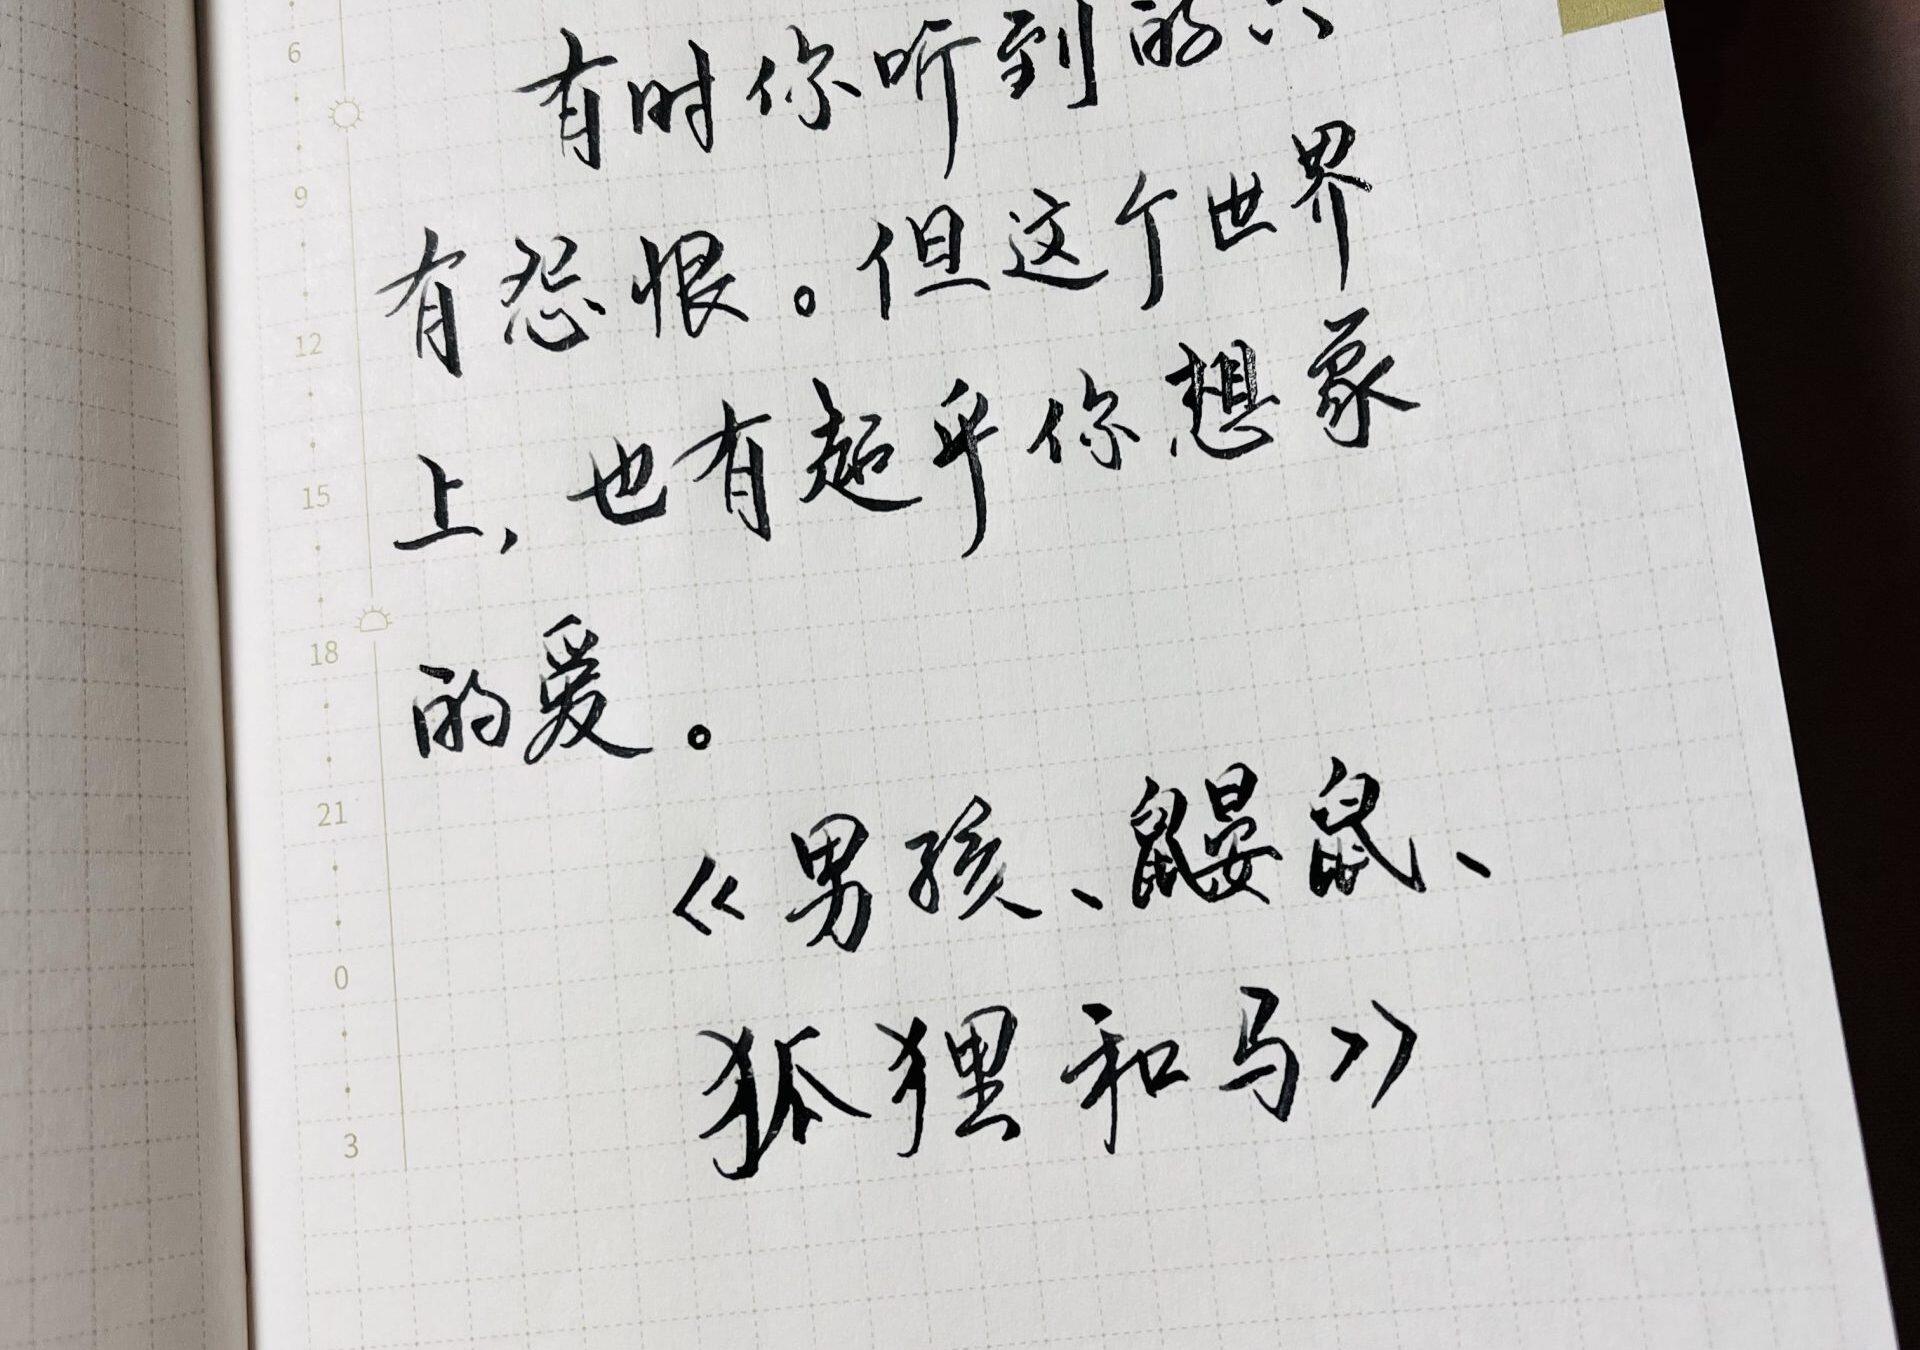 有时你听到的只
有怨恨。但这个世界
上，也有超乎你想象
的爱。
《男孩、鼹鼠、
狐狸和马》
6
9
12
15
18
21
0
3